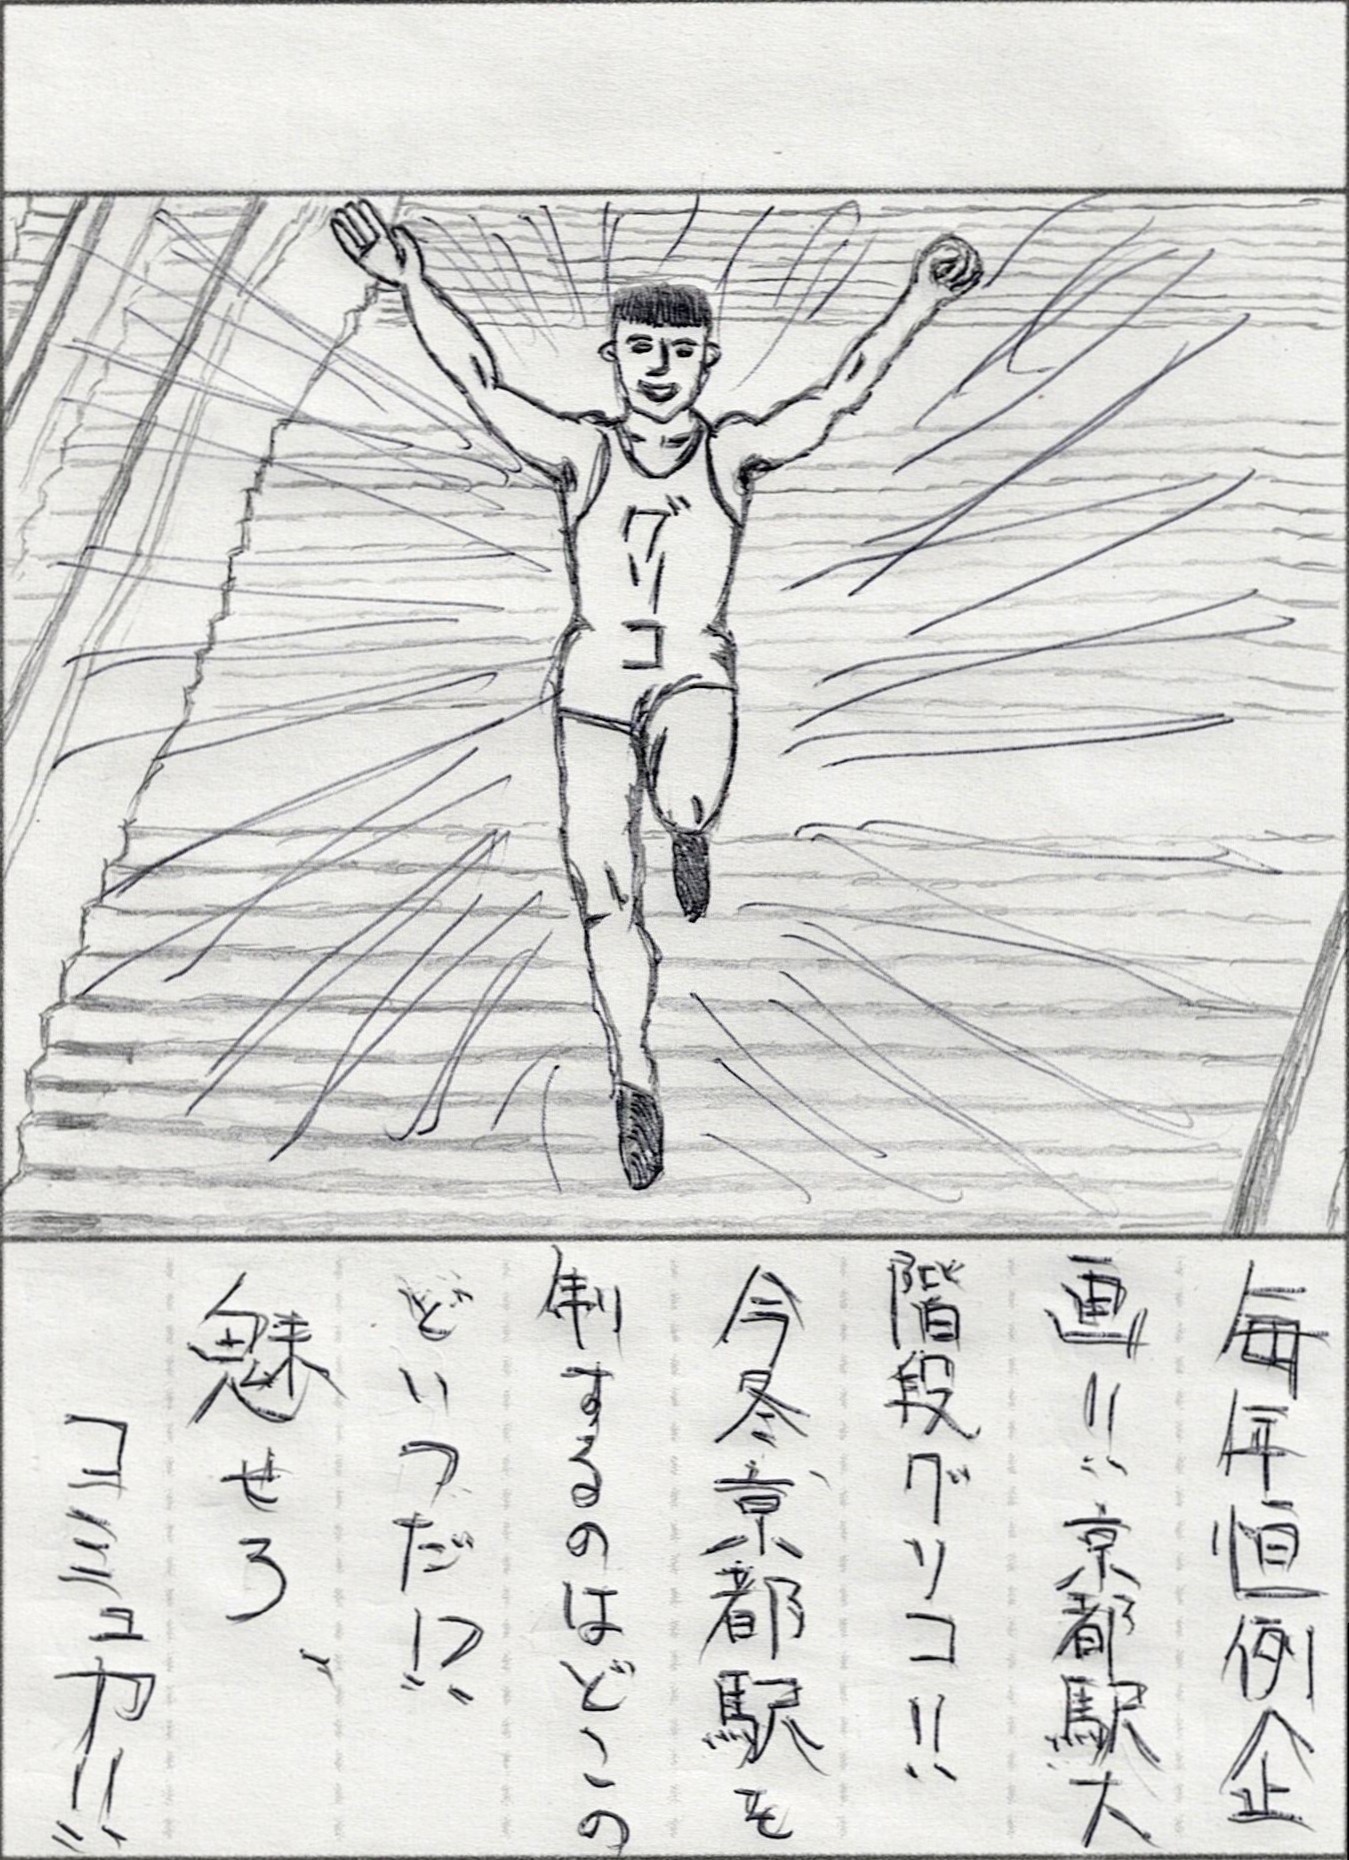 グリコ
毎年恒例企
画!!京都駅大
階段グリコ!!
今冬、京都駅を
制するのはどこの
どいつだ!?
魅せろ、
コミュ力!!